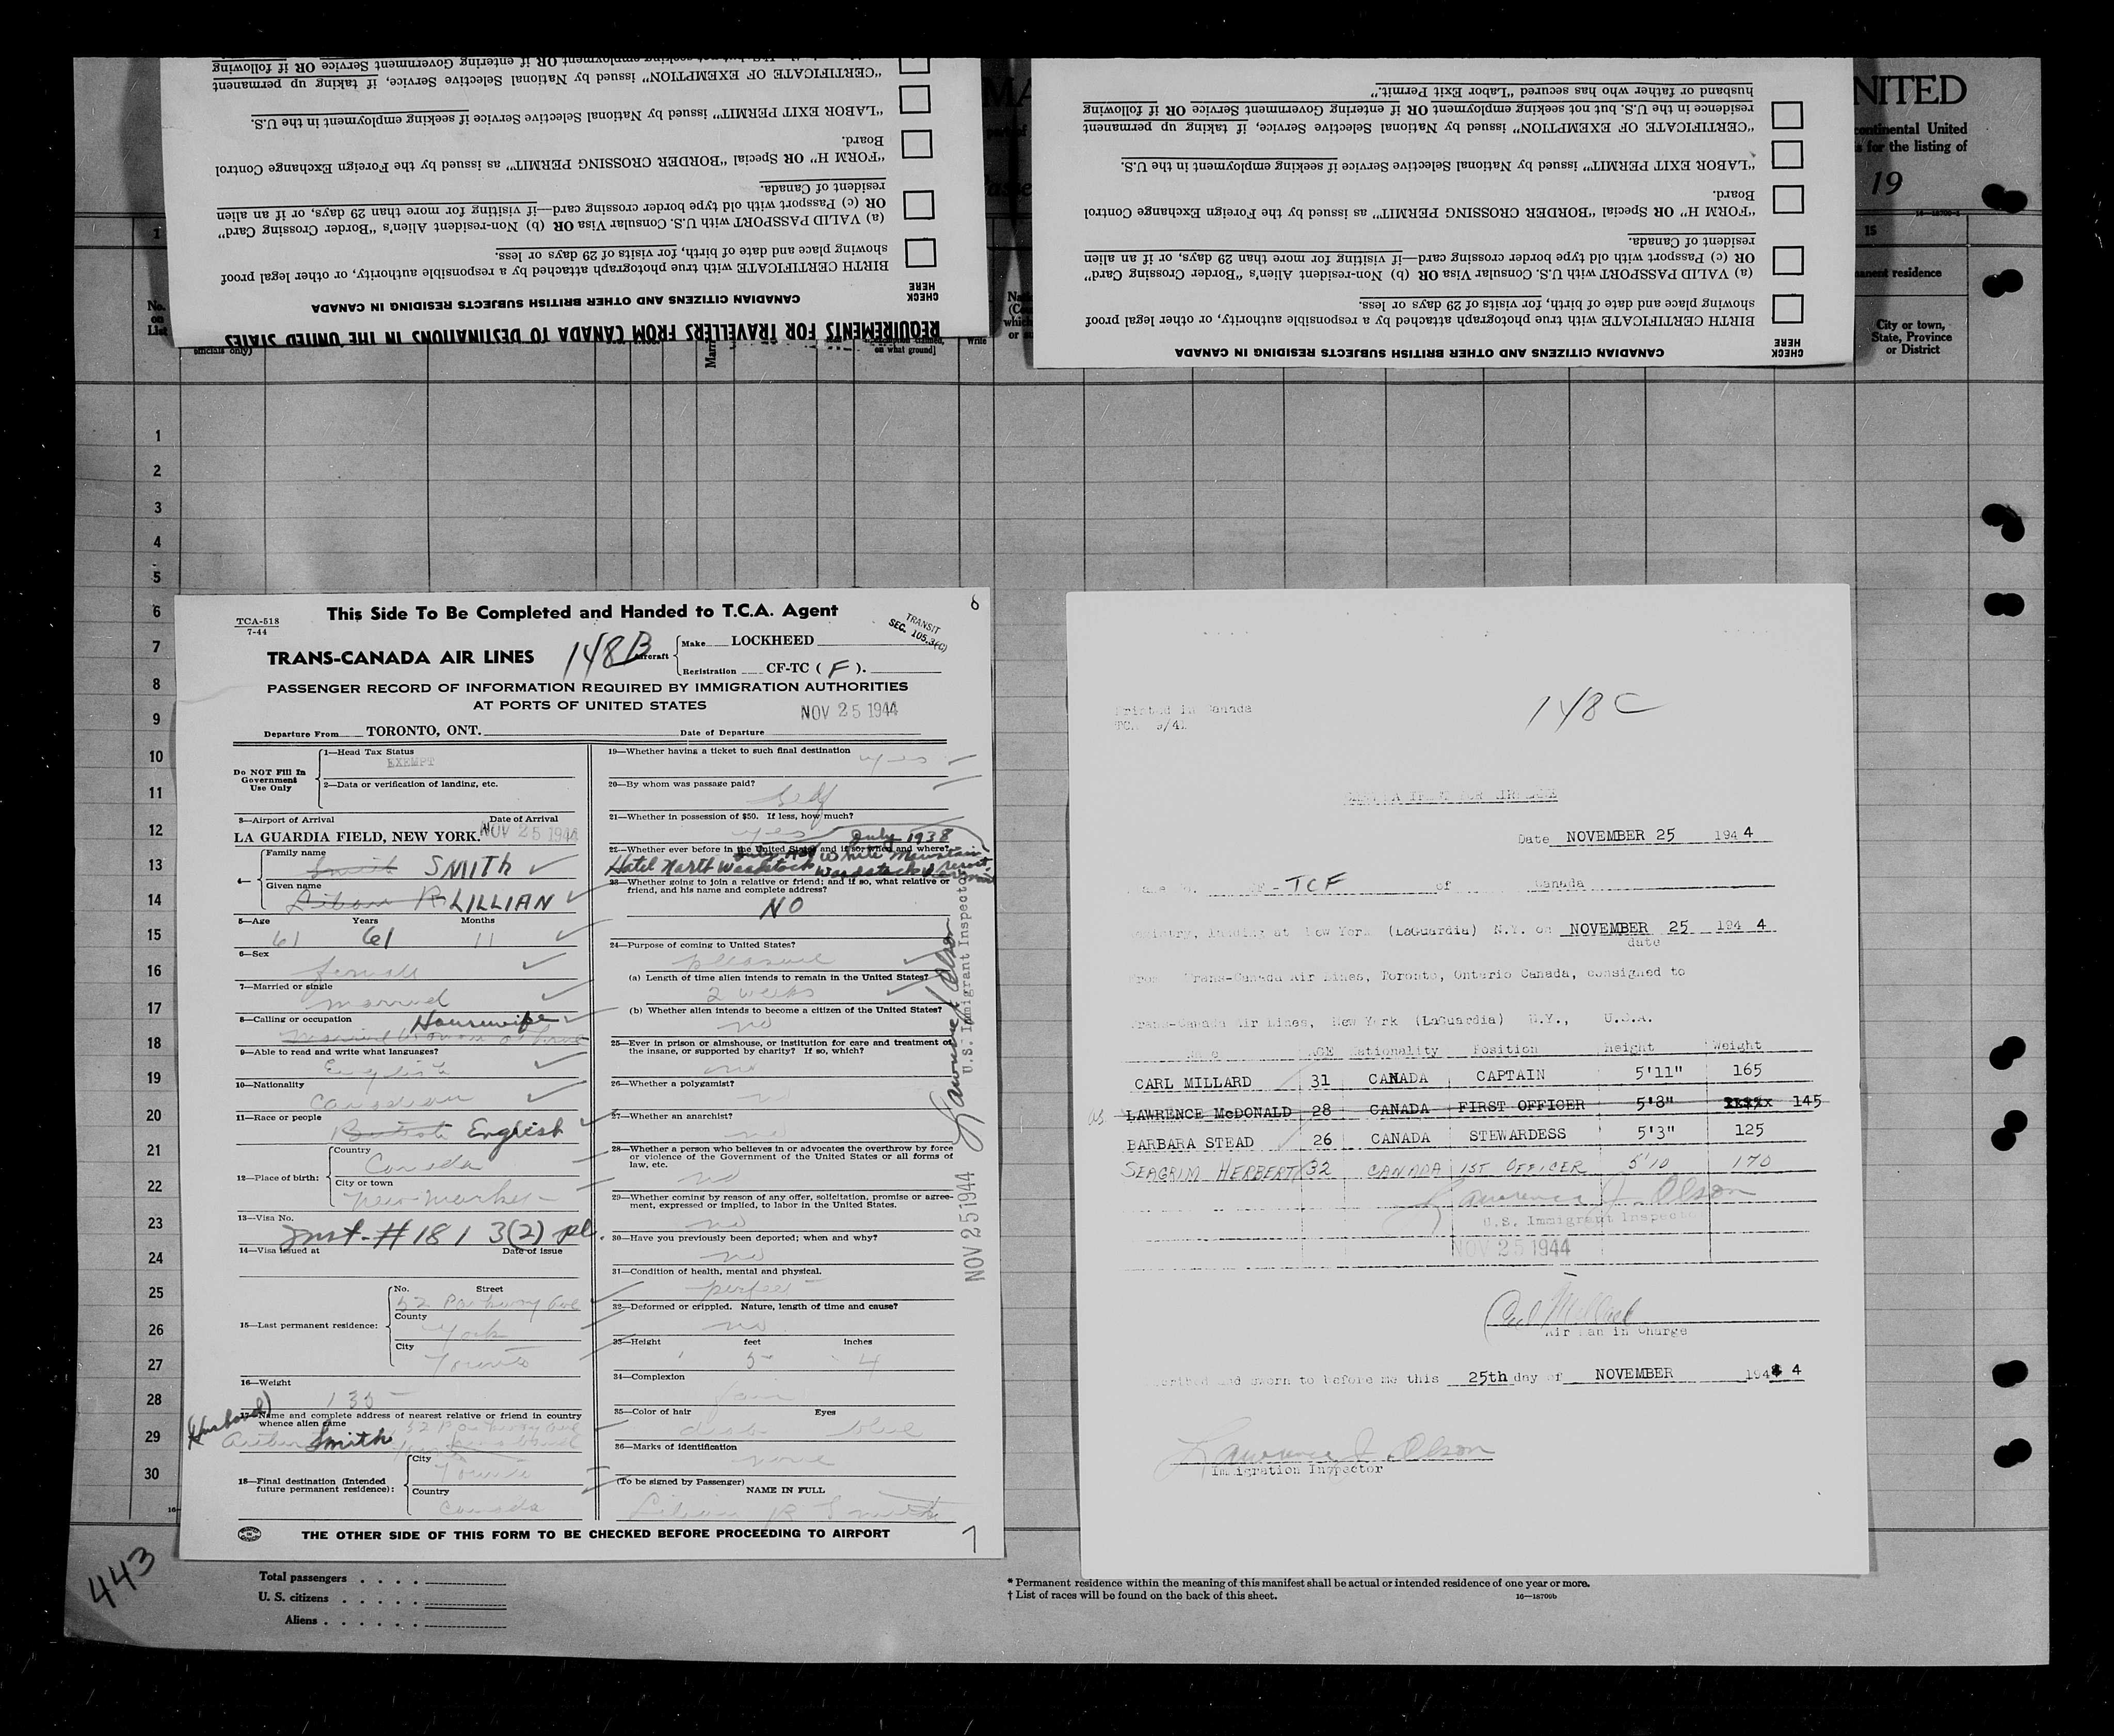 "CERTIFICATE OF EXEMPTION" issued by National Selective Service, if taking up permanent
OR if entering Government Service OR if following
"LABOR EXIT PERMIT" issued by National Selective Service if seeking employment in the U.S.
"FORM H" OR Special "BORDER CROSSING PERMIT" as issued by the Foreign Exchange Control
Board.
(a) VALID PASSPORT with U.S. Consular Visa OR (b) Non-resident Alien's "Border Crossing Card"
OR (c) Passport with old type border crossing card—if visiting for more than 29 days, or if an alien
resident of Canada.
BIRTH CERTIFICATE with true photograph attached by a responsible authority, or other legal proof
showing place and date of birth, for visits of 29 days or less.
CHECK
HERE
CANADIAN CITIZENS AND OTHER BRITISH SUBJECTS RESIDING IN CANADA
REQUIREMENTS FOR TRAVELLERS FROM CANADA TO DESTINATIONS IN THE UNITED STATES
CHECK
HERE
CANADIAN CITIZENS AND OTHER BRITISH SUBJECTS RESIDING IN CANADA
BIRTH CERTIFICATE with true photograph attached by a responsible authority, or other legal proof
showing place and date of birth, for visits of 29 days or less.
(a) VALID PASSPORT with U.S. Consular Visa OR (b) Non-resident Alien's "Border Crossing Card"
OR (c) Passport with old type border crossing card—if visiting for more than 29 days, or if an alien
resident of Canada.
"FORM H" OR Special "BORDER CROSSING PERMIT" as issued by the Foreign Exchange Control
Board.
"LABOR EXIT PERMIT" issued by National Selective Service if seeking employment in the U.S.
"CERTIFICATE OF EXEMPTION" issued by National Selective Service, if taking up permanent
residence in the U.S. but not seeking employment OR if entering Government Service OR if following
husband or father who has secured "Labor Exit Permit."
NITED
continental United
for the listing of
19
15
residence
City or town,
State, Province
or District
No.
on
List
officials only)
on what ground]
write
1
2
3
4
5
6
7
8
9
10
11
12
13
14
15
16
17
18
19
20
21
22
23
24
25
26
27
28
29
30
TCA-518
7-44
This Side To Be Completed and Handed to T.C.A. Agent
8
TRANSIT
SEC. 105.3(C)
TRANS-CANADA AIR LINES
148B
Aircraft
Make LOCKHEED
Registration CF-TC ( F ).
PASSENGER RECORD OF INFORMATION REQUIRED BY IMMIGRATION AUTHORITIES
AT PORTS OF UNITED STATES
NOV 25 1944
Departure From TORONTO, ONT. Date of Departure
Do NOT Fill In
Government
Use Only
1—Head Tax Status
EXEMPT
2—Data or verification of landing, etc.
3—Airport of Arrival Date of Arrival
LA GUARDIA FIELD, NEW YORK. NOV 25 1944
4—
Family name
Smith SMITH
Given name
Lilian R LILLIAN
5—Age Years Months
61 61 11
6—Sex
female
7—Married or single
married
8—Calling or occupation Housewife
9—Able to read and write what languages?
English
10—Nationality
Canadian
11—Race or people
British English
12—Place of birth:
Country
Canada
City or town
Newmarket
13—Visa No.
Inst-#181 3(2) pl.
14—Visa issued at Date of issue
15—Last permanent residence:
No. Street
52 Parkway Ave
County
York
City
Toronto
16—Weight
135
17—Name and complete address of nearest relative or friend in country
whence alien came
(Husband)
Arthur Smith 52 Parkway Ave
18—Final destination (Intended
future permanent residence):
City
Toronto
Country
Canada
19—Whether having a ticket to such final destination
yes
20—By whom was passage paid?
Self
21—Whether in possession of $50. If less, how much?
yes July 1938
22—Whether ever before in the United States and if so, when and where?
White Mountain
Hotel North Woodstock Woodstock Vermont
resort
23—Whether going to join a relative or friend; and if so, what relative or
friend, and his name and complete address?
NO
24—Purpose of coming to United States?
pleasure
(a) Length of time alien intends to remain in the United States?
2 weeks
(b) Whether alien intends to become a citizen of the United States?
no
25—Ever in prison or almshouse, or institution for care and treatment of
the insane, or supported by charity? If so, which?
no
26—Whether a polygamist?
no
27—Whether an anarchist?
no
28—Whether a person who believes in or advocates the overthrow by force
or violence of the Government of the United States or all forms of
law, etc.
no
29—Whether coming by reason of any offer, solicitation, promise or agree-
ment, expressed or implied, to labor in the United States.
no
30—Have you previously been deported; when and why?
no
31—Condition of health, mental and physical.
perfect
32—Deformed or crippled. Nature, length of time and cause?
no
33—Height feet inches
5 4
34—Complexion
fair
35—Color of hair Eyes
dark blue
36—Marks of identification
none
(To be signed by Passenger)
NAME IN FULL
Lilian R Smith
THE OTHER SIDE OF THIS FORM TO BE CHECKED BEFORE PROCEEDING TO AIRPORT
7
Lawrence J Olson
U.S. Immigrant Inspector
NOV 25 1944
Printed in Canada
TCA 9/41
148C
Date NOVEMBER 25 194 4
CF-TCF of Canada
Registry, landing at New York (LaGuardia) N.Y. on NOVEMBER 25 194 4
date
From Trans-Canada Air Lines, Toronto, Ontario Canada, consigned to
Trans-Canada Air Lines, New York (LaGuardia) N.Y., U.S.A.
Name AGE Nationality Position Height Weight
CARL MILLARD 31 CANADA CAPTAIN 5'11" 165
LAWRENCE McDONALD 28 CANADA FIRST OFFICER 5'8" 145
BARBARA STEAD 26 CANADA STEWARDESS 5'3" 125
SEAGRIM HERBERT 32 CANADA 1ST OFFICER 5'10 170
Lawrence J. Olson
U.S. Immigrant Inspector
NOV 25 1944
Carl Millard
Air Man in Charge
scribed and sworn to before me this 25th day of NOVEMBER 194 4
Lawrence J. Olson
Immigration Inspector
443
Total passengers
U. S. citizens
Aliens
* Permanent residence within the meaning of this manifest shall be actual or intended residence of one year or more.
† List of races will be found on the back of this sheet.
16—18700b